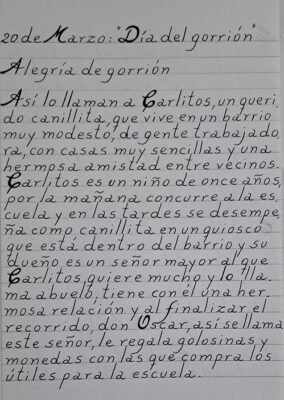 20 de Marzo: "Día del gorrión"
Alegría de gorrión
Así lo llaman a Carlitos, un queri
do canillita, que vive en un barrio
muy modesto, de gente trabajado
ra, con casas muy sencillas y una
hermosa amistad entre vecinos.
Carlitos es un niño de once años,
por la mañana concurre a la es
cuela y en las tardes se desempe
ña como canillita en un quiosco
que está dentro del barrio y su
dueño es un señor mayor al que
Carlitos quiere mucho y lo lla
ma abuelo, tiene con él una her
mosa relación y al finalizar el
recorrido, don Oscar, así se llama
este señor, le regala golosinas y
monedas con las que compra los
útiles para la escuela.